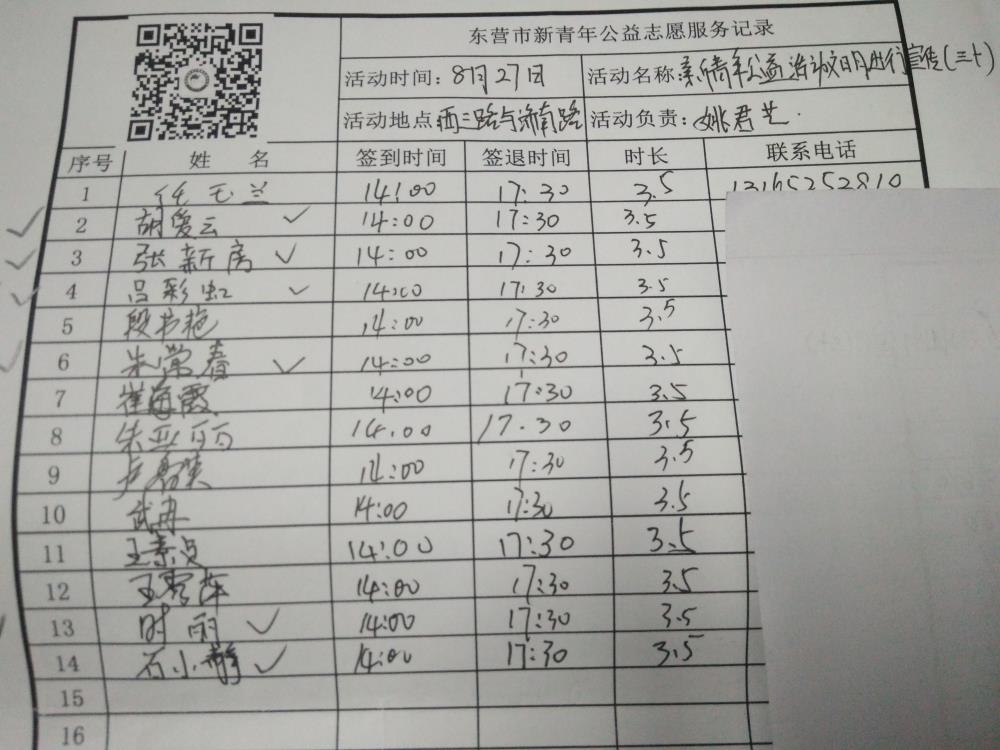 东营市新青年公益志愿服务记录
活动时间：8月27日 活动名称：新青年公益活动文明出行宣传（三十）
活动地点：西三路与济南路 活动负责：姚君芝
序号 姓 名 签到时间 签退时间 时长 联系电话
1 任玉兰 14:00 17:30 3.5 13165252810
2 胡爱云 ✓ 14:00 17:30 3.5
3 张新房 ✓ 14:00 17:30 3.5
4 吕彩虹 ✓ 14:00 17:30 3.5
5 段书艳 14:00 17:30 3.5
6 朱常春 ✓ 14:00 17:30 3.5
7 崔海霞 14:00 17:30 3.5
8 朱亚丽 14:00 17:30 3.5
9 14:00 17:30 3.5
10 武冉 14:00 17:30 3.5
11 王素贞 14:00 17:30 3.5
12 王 14:00 17:30 3.5
13 时雨 ✓ 14:00 17:30 3.5
14 石小静 ✓ 14:00 17:30 3.5
15
16